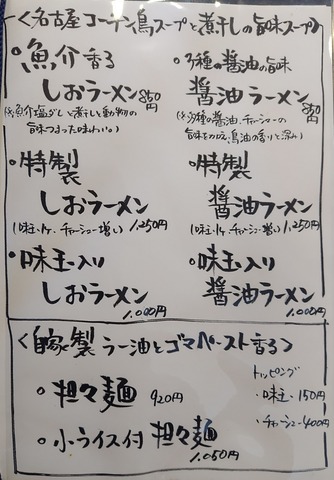 <名古屋コーチン鳥スープと煮干しの旨味スープ>
・魚介香る
しおラーメン 850円
(※魚介塩ダレと煮干しと動物の
旨味つまった味わい。)
・特製
しおラーメン
(味玉・1ケ、チャーシュー増し) 1,250円
・味玉入り
しおラーメン
1,000円
・3種の醤油の旨味
醤油ラーメン 850円
(※3種の醤油、チャーシューの
旨味を加え、鳥油の香りと深み)
・特製
醤油ラーメン
(味玉・1ケ、チャーシュー増し) 1,250円
・味玉入り
醤油ラーメン
1,000円
<自家製 ラー油とゴマペースト香る>
・担々麺 920円
・小ライス付 担々麺
1,050円
トッピング
・味玉-150円
・チャーシュー-400円